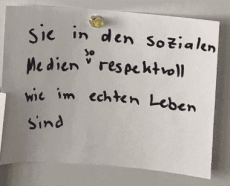 Sie in den sozialen
Medien so respektvoll
wie im echten Leben
sind